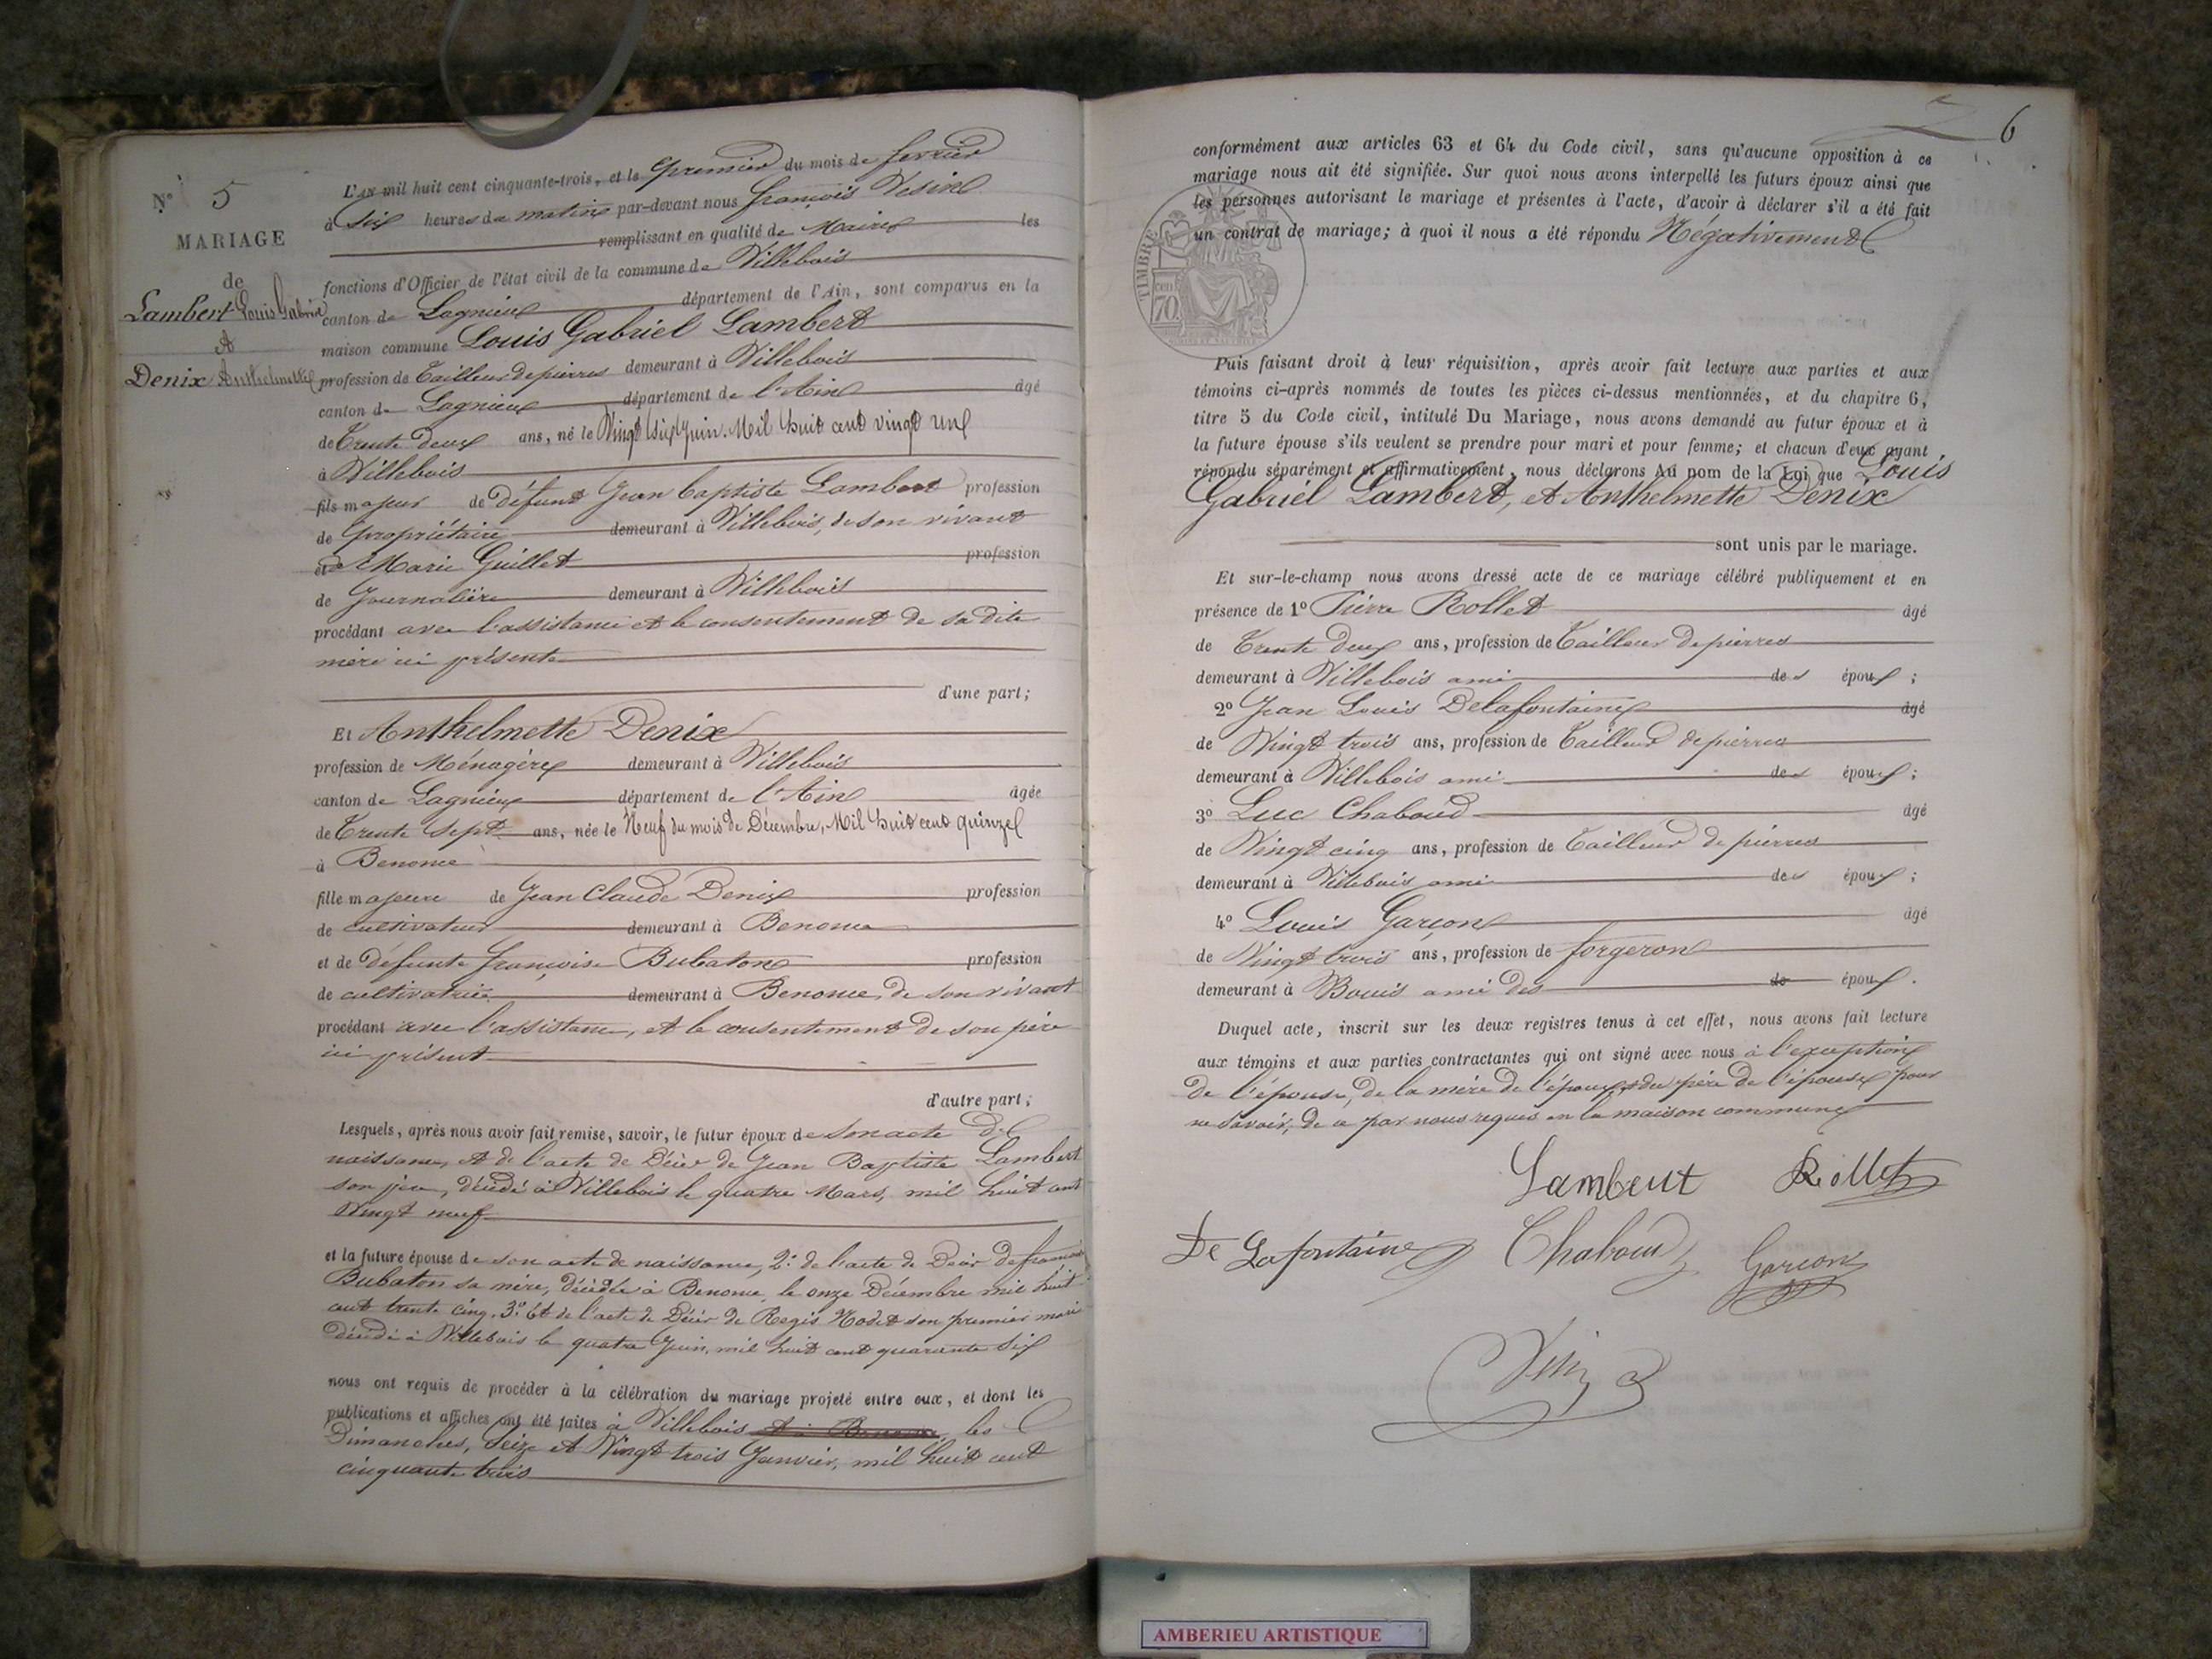 N° 5
MARIAGE
de
Lambert Louis Gabriel
et
Denix Anthelmette
L'AN mil huit cent cinquante-trois, et le premier du mois de fevrier
à six heures du matin par-devant nous françois Vesin
remplissant en qualité de Maire les
fonctions d'Officier de l'état civil de la commune de Villebois
canton de Lagnieu département de l'Ain, sont comparus en la
maison commune Louis Gabriel Lambert
profession de Tailleur de pierres demeurant à Villebois
canton de Lagnieu département de l'Ain âgé
de Trente deux ans, né le Vingt six Juin. Mil huit cent vingt un
à Villebois
fils majeur de défunt Jean baptiste Lambert profession
de propriétaire demeurant à Villebois, de son vivant
et de Marie Guillet profession
de Journalière demeurant à Villebois
procédant avec l'assistance et le consentement de sa dite
mère ici présente
d'une part;
Et Anthelmette Denix
profession de Ménagère demeurant à Villebois
canton de Lagnieu département de l'Ain âgée
de Trente sept ans, née le Neuf du mois de Décembre, Mil huit cent quinze
à Benonce
fille majeure de Jean Claude Denix profession
de cultivateur demeurant à Benonce
et de défunte françoise Bubaton profession
de cultivatrice demeurant à Benonce, de son vivant
procédant avec l'assistance, et le consentement de son père
ici présent
d'autre part;
Lesquels, après nous avoir fait remise, savoir, le futur époux de son acte de
naissance, et de l'acte de Décès de Jean Baptiste Lambert
son père, décédé à Villebois le quatre Mars, mil huit cent
vingt neuf
et la future épouse de son acte de naissance, 2° de l'acte de Décès de françoise
Bubaton sa mère, décédée à Benonce, le onze Décembre mil huit
cent trente cinq. 3° Et de l'acte de Décès de Regis Nodet son premier mari
décédé à Villebois le quatre Juin, mil huit cent quarante six
nous ont requis de procéder à la célébration du mariage projeté entre eux, et dont les
publications et affiches ont été faites à Villebois et à Benonce, les
Dimanches, Seize et Vingt trois Janvier, mil huit cent
cinquante trois
6
conformément aux articles 63 et 64 du Code civil, sans qu'aucune opposition à ce
mariage nous ait été signifiée. Sur quoi nous avons interpellé les futurs époux ainsi que
les personnes autorisant le mariage et présentes à l'acte, d'avoir à déclarer s'il a été fait
un contrat de mariage; à quoi il nous a été répondu Négativement
TIMBRE
70
Puis faisant droit à leur réquisition, après avoir fait lecture aux parties et aux
témoins ci-après nommés de toutes les pièces ci-dessus mentionnées, et du chapitre 6,
titre 5 du Code civil, intitulé Du Mariage, nous avons demandé au futur époux et à
la future épouse s'ils veulent se prendre pour mari et pour femme; et chacun d'eux ayant
répondu séparément et affirmativement, nous déclarons Au nom de la Loi que Louis
Gabriel Lambert, et Anthelmette Denix
sont unis par le mariage.
Et sur-le-champ nous avons dressé acte de ce mariage célébré publiquement et en
présence de 1° Pierre Rollet âgé
de Trente deux ans, profession de Tailleur de pierres
demeurant à Villebois ami des époux;
2° Jean Louis Delafontaine âgé
de Vingt trois ans, profession de Tailleur de pierres
demeurant à Villebois ami des époux;
3° Luc Chaboud âgé
de Vingt cinq ans, profession de Tailleur de pierres
demeurant à Villebois ami des époux;
4° Louis Garçon âgé
de Vingt trois ans, profession de forgeron
demeurant à Bouis ami des de époux.
Duquel acte, inscrit sur les deux registres tenus à cet effet, nous avons fait lecture
aux témoins et aux parties contractantes qui ont signé avec nous à l'exception
de l'épouse, de la mère de l'époux, et du père de l'épouse pour
ne savoir, de ce par nous requis en la maison commune
Lambert Rollet
De Lafontaine Chaboud Garçon
Vesin
AMBERIEU ARTISTIQUE